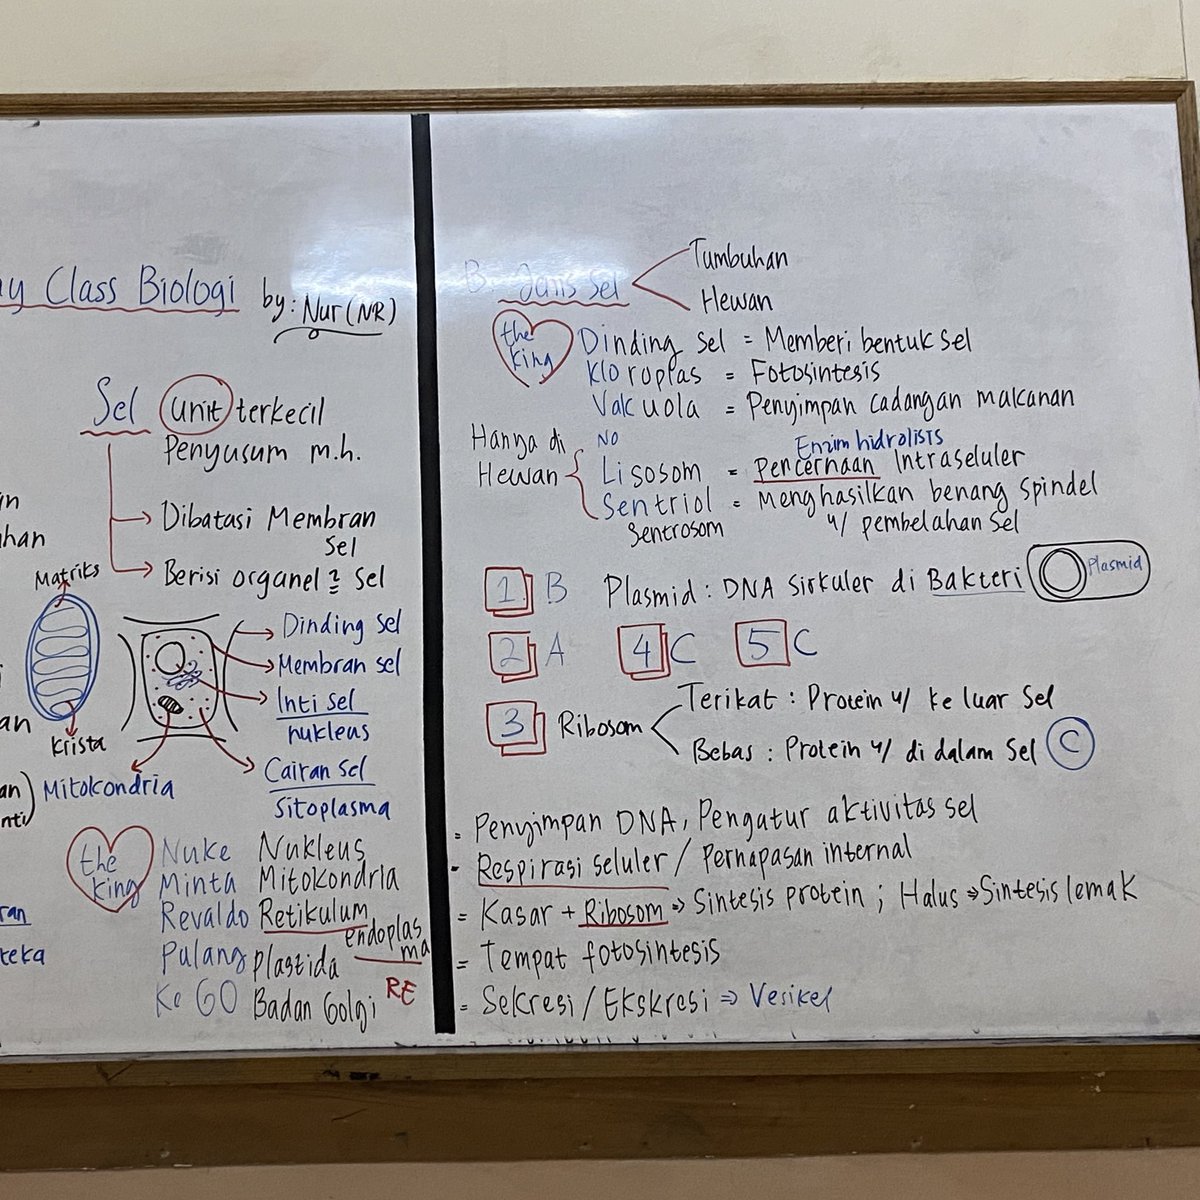 Class Biologi by: Nur (NR)
Sel unit terkecil
Penyusum m.h.
Dibatasi Membran
Sel
Berisi organel ² sel
Matriks
Krista
Mitokondria
Dinding sel
Membran sel
Inti sel
nukleus
Cairan sel
Sitoplasma
the king
Nuke Nukleus
Minta Mitokondria
Revaldo Retikulum
endoplas
ma
Pulang plastida
RE
Ke GO Badan Golgi
B. Jenis sel
Tumbuhan
Hewan
the king
Dinding sel = Memberi bentuk sel
Kloroplas = Fotosintesis
Vakuola = Penyimpan cadangan makanan
Hanya di
Hewan
NO
Enzim hidrolisis
Lisosom = Pencernaan Intraseluler
Sentriol = Menghasilkan benang spindel
Sentrosom
u/ pembelahan sel
1. B Plasmid : DNA Sirkuler di Bakteri Plasmid
2 A 4 C 5 C
3 Ribosom
Terikat : Protein u/ ke luar sel
Bebas : Protein u/ di dalam sel C
= Penyimpan DNA, Pengatur aktivitas sel
- Respirasi seluler / Pernapasan internal
= Kasar + Ribosom ⇒ Sintesis protein ; Halus ⇒ Sintesis lemak
= Tempat fotosintesis
= Sekresi / Ekskresi ⇒ Vesikel